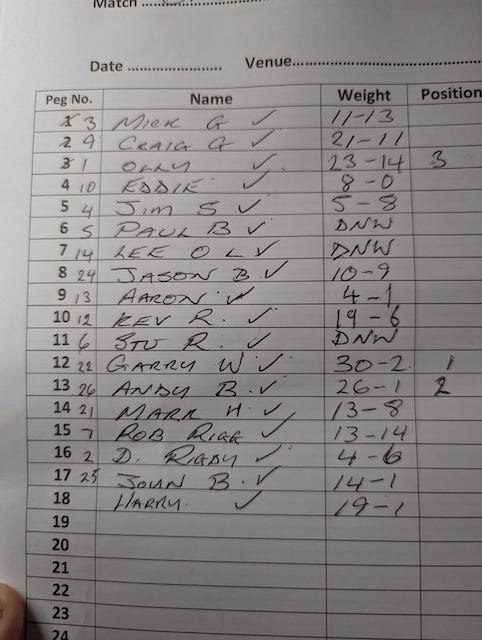 Match ......
Date ........................ Venue................................................
Peg No. Name Weight Position
1 3 MICK G ✓ 11-13
2 9 CRAIG G ✓ 21-11
3 1 OLLY ✓ 23-14 3
4 10 EDDIE ✓ 8-0
5 4 JIM S ✓ 5-8
6 5 PAUL B ✓ DNW
7 14 LEE O L ✓ DNW
8 24 JASON B ✓ 10-9
9 13 AARON ✓ 4-1
10 12 KEV R. ✓ 19-6
11 6 STU R. ✓ DNW
12 22 GARRY W ✓ 30-2 1
13 26 ANDY B. ✓ 26-1 2
14 21 MARK H. ✓ 13-8
15 7 ROB RIGG ✓ 13-14
16 2 D. RIGBY ✓ 4-6
17 25 JOHN B. ✓ 14-1
18 HARRY. ✓ 19-1
19
20
21
22
23
24